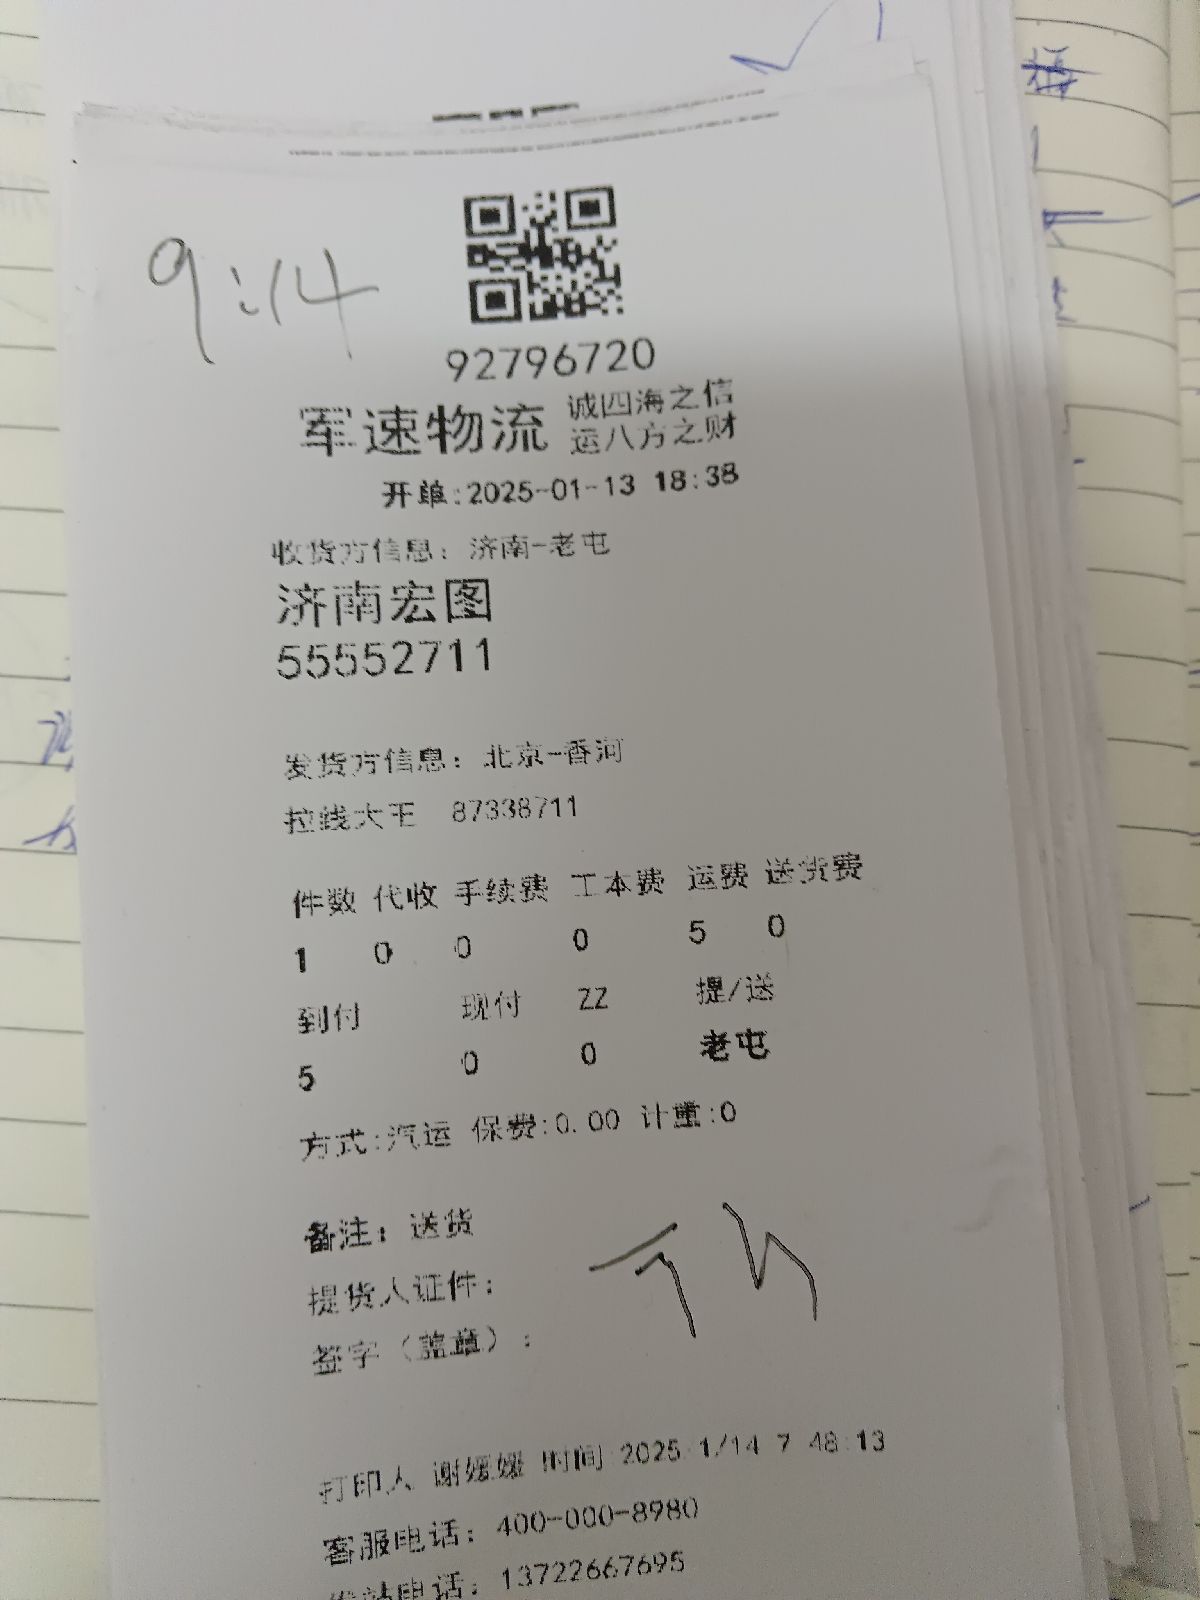 9:14
92796720
军速物流 诚四海之信
运八方之财
开单:2025-01-13 18:38
收货方信息: 济南-老屯
济南宏图
55552711
发货方信息: 北京-香河
拉线大王 87338711
件数 代收 手续费 工本费 运费 送货费
1 0 0 0 5 0
到付 现付 ZZ 提/送
5 0 0 老屯
方式:汽运 保费:0.00 计重:0
备注: 送货
提货人证件:
签字(盖章):
打印人 谢媛媛 时间 2025 1/14 7 48:13
客服电话: 400-000-8980
发站电话: 13722667695